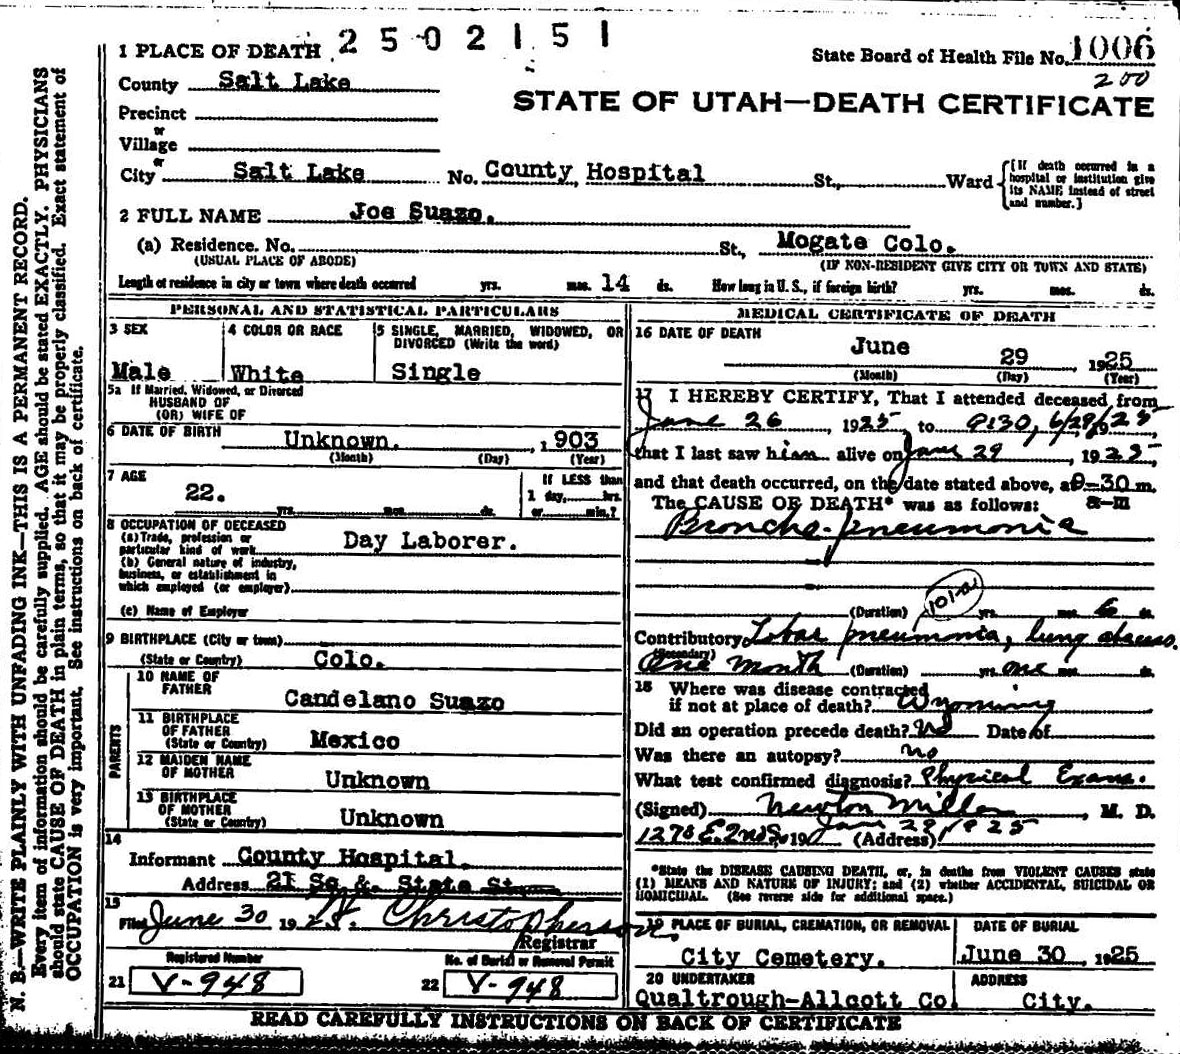 2 5 0 2 1 5 1
1 PLACE OF DEATH
State Board of Health File No. 1006
200
County Salt Lake
STATE OF UTAH—DEATH CERTIFICATE
Precinct
or
Village
or
City Salt Lake No. County Hospital St., Ward
[If death occurred in a
hospital or institution give
its NAME instead of street
and number.]
2 FULL NAME Joe Suazo.
(a) Residence. No. St., Mogate Colo.
(USUAL PLACE OF ABODE) (IF NON-RESIDENT GIVE CITY OR TOWN AND STATE)
Length of residence in city or town where death occurred yrs. mos. 14 ds. How long in U. S., if foreign birth? yrs. mos. ds.
PERSONAL AND STATISTICAL PARTICULARS
3 SEX
Male
4 COLOR OR RACE
White
5 SINGLE, MARRIED, WIDOWED, OR
DIVORCED (Write the word)
Single
5a If Married, Widowed, or Divorced
HUSBAND OF
(OR) WIFE OF
6 DATE OF BIRTH Unknown. , 1903
(Month) (Day) (Year)
7 AGE
22.
yrs. mos. ds.
If LESS than
1 day, hrs.
or min.?
8 OCCUPATION OF DECEASED
(a) Trade, profession or
particular kind of work Day Laborer.
(b) General nature of industry,
business, or establishment in
which employed (or employer)
(c) Name of Employer
9 BIRTHPLACE (City or town)
(State or Country) Colo.
PARENTS
10 NAME OF
FATHER Candelano Suazo
11 BIRTHPLACE
OF FATHER
(State or Country) Mexico
12 MAIDEN NAME
OF MOTHER Unknown
13 BIRTHPLACE
OF MOTHER
(State or Country) Unknown
14
Informant County Hospital.
Address 21 So. & State St.
15
Filed June 30 19 25. Christopherson
Registrar
Registered Number
21 V-948
No. of Burial or Removal Permit
22 V-948
MEDICAL CERTIFICATE OF DEATH
16 DATE OF DEATH
June 29 1925
(Month) (Day) (Year)
17 I HEREBY CERTIFY, That I attended deceased from
June 26 1925, to 9:30, 6/29/25,
that I last saw him alive on June 29, 1925,
and that death occurred, on the date stated above, at 9-30 m.
a-m
The CAUSE OF DEATH* was as follows:
Broncho-pneumonia
(Duration) yrs. mos. 6 ds.
Contributory Lobar pneumonia, lung abscess.
(Secondary)
One month (Duration) yrs. one mos. ds.
18 Where was disease contracted
if not at place of death? Wyoming
Did an operation precede death? No Date of
Was there an autopsy? no
What test confirmed diagnosis? Physical Exam.
(Signed) Newton Miller, M. D.
1270 E. 2nd S. 19 June 29, 1925 (Address)
*State the DISEASE CAUSING DEATH, or, in deaths from VIOLENT CAUSES state
(1) MEANS AND NATURE OF INJURY; and (2) whether ACCIDENTAL, SUICIDAL OR
HOMICIDAL. (See reverse side for additional space.)
19 PLACE OF BURIAL, CREMATION, OR REMOVAL
City Cemetery.
DATE OF BURIAL
June 30 1925
20 UNDERTAKER
Qualtrough-Allcott Co.
ADDRESS
City.
READ CAREFULLY INSTRUCTIONS ON BACK OF CERTIFICATE
N. B.—WRITE PLAINLY WITH UNFADING INK—THIS IS A PERMANENT RECORD.
Every item of information should be carefully supplied. AGE should be stated EXACTLY. PHYSICIANS
should state CAUSE OF DEATH in plain terms, so that it may be properly classified. Exact statement of
OCCUPATION is very important. See instructions on back of certificate.